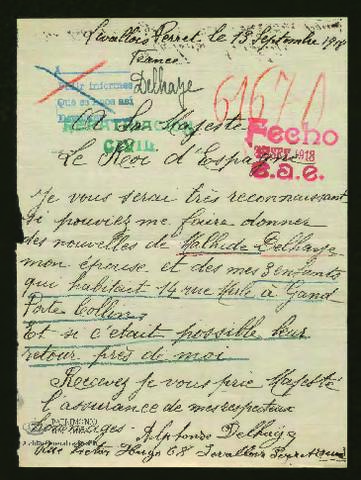 Levallois Perret le 13 Septembre 1918
France
Delhaye
61670
Pedir informes
REPATRIACION
CIVIL
A Sa Majesté
Fecho
SET. 1918
S.a.e.
Le Roi d'Espagne
Je vous serai très reconnaissant
si pouviez me faire donner
des nouvelles de Mathide Delhaye
mon épouse et des mes 3 enfants
qui habitait 14 rue à Gand
Porte
Et si c'etait possible leur
retour près de moi
Recevez je vous prie Majesté
l'assurance de mes respectueux
hommages.
PATRIMONIO
Alphonse Delhaye
Rue Victor Hugo 68 Levallois Perret